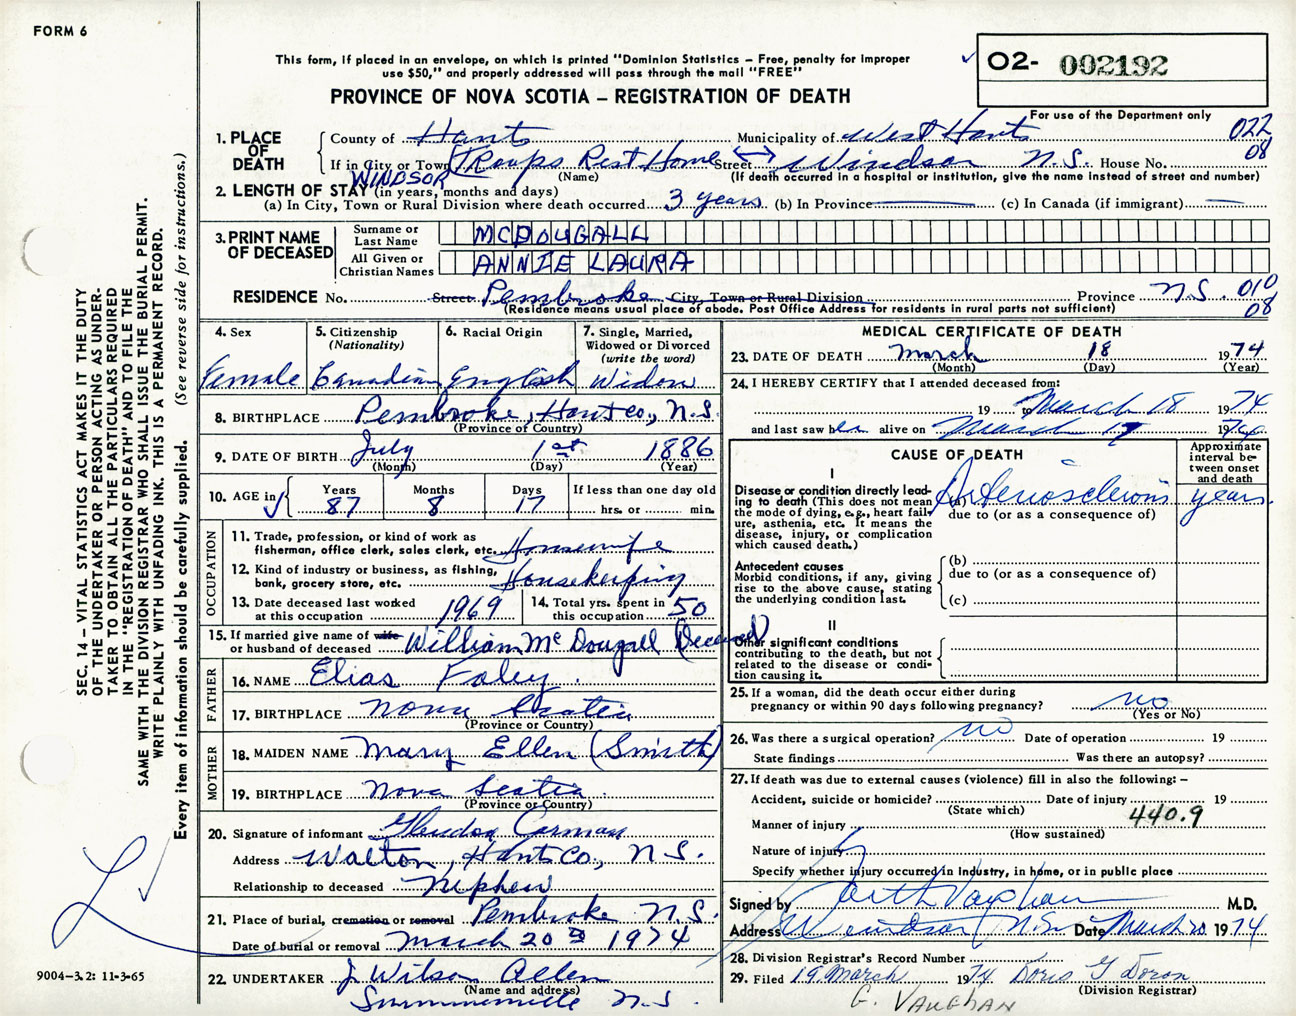 FORM 6
This form, if placed in an envelope, on which is printed "Dominion Statistics – Free, penalty for improper
use $50," and properly addressed will pass through the mail "FREE"
PROVINCE OF NOVA SCOTIA – REGISTRATION OF DEATH
O2- 002192
For use of the Department only
022
08
1. PLACE OF DEATH
County of Hants Municipality of West Hants
If in City or Town Troops Rest Home Street Windsor N.S. House No.
WINDSOR (Name) (If death occurred in a hospital or institution, give the name instead of street and number)
2. LENGTH OF STAY (in years, months and days)
(a) In City, Town or Rural Division where death occurred 3 years (b) In Province (c) In Canada (if immigrant)
3. PRINT NAME OF DECEASED
Surname or Last Name MCDOUGALL
All Given or Christian Names ANNIE LAURA
RESIDENCE No. Street Pembroke City, Town or Rural Division Province N.S. 010
(Residence means usual place of abode. Post Office Address for residents in rural parts not sufficient) 08
4. Sex
Female
5. Citizenship
(Nationality)
Canadian
6. Racial Origin
English
7. Single, Married,
Widowed or Divorced
(write the word)
Widow
8. BIRTHPLACE Pembroke, Hants Co., N.S.
(Province of Country)
9. DATE OF BIRTH July 1st 1886
(Month) (Day) (Year)
10. AGE in
Years Months Days If less than one day old
87 8 17 hrs. or min.
OCCUPATION
11. Trade, profession, or kind of work as
fisherman, office clerk, sales clerk, etc. Housewife
12. Kind of industry or business, as fishing,
bank, grocery store, etc. Housekeeping
13. Date deceased last worked
at this occupation 1969
14. Total yrs. spent in
this occupation 50
15. If married give name of wife
or husband of deceased William McDougall (Deceased)
FATHER
16. NAME Elias Foley.
17. BIRTHPLACE Nova Scotia
(Province or Country)
MOTHER
18. MAIDEN NAME Mary Ellen (Smith)
19. BIRTHPLACE Nova Scotia.
(Province or Country)
20. Signature of informant Glendon Carman
Address Walton, Hants Co., N.S.
Relationship to deceased Nephew
21. Place of burial, cremation or removal Pembroke N.S.
Date of burial or removal March 20 1974
22. UNDERTAKER J. Wilson Allen
(Name and address)
Summerville N.S.
MEDICAL CERTIFICATE OF DEATH
23. DATE OF DEATH March 18 1974
(Month) (Day) (Year)
24. I HEREBY CERTIFY that I attended deceased from:
19 to March 18 1974
and last saw her alive on March 17 1974
CAUSE OF DEATH
Approximate
interval be-
tween onset
and death
I
Disease or condition directly lead-
ing to death (This does not mean
the mode of dying, e.g., heart fail-
ure, asthenia, etc. It means the
disease, injury, or complication
which caused death.)
(a) Arteriosclerosis years.
due to (or as a consequence of)
Antecedent causes
Morbid conditions, if any, giving
rise to the above cause, stating
the underlying condition last.
(b)
due to (or as a consequence of)
(c)
II
Other significant conditions
contributing to the death, but not
related to the disease or condi-
tion causing it.
25. If a woman, did the death occur either during
pregnancy or within 90 days following pregnancy? no
(Yes or No)
26. Was there a surgical operation? no Date of operation 19
State findings Was there an autopsy?
27. If death was due to external causes (violence) fill in also the following: –
Accident, suicide or homicide? Date of injury 19
(State which)
440.9
Manner of injury
(How sustained)
Nature of injury
Specify whether injury occurred in Industry, in home, or in public place
Signed by Garth Vaughan M.D.
Address Windsor N.S. Date March 20 1974
28. Division Registrar's Record Number
29. Filed 19 March 1974 Doris G Doran
(Division Registrar)
G. VAUGHAN
SEC. 14 – VITAL STATISTICS ACT MAKES IT THE DUTY
OF THE UNDERTAKER OR PERSON ACTING AS UNDER-
TAKER TO OBTAIN ALL THE PARTICULARS REQUIRED
IN THE "REGISTRATION OF DEATH" AND TO FILE THE
SAME WITH THE DIVISION REGISTRAR WHO SHALL ISSUE THE BURIAL PERMIT.
WRITE PLAINLY WITH UNFADING INK. THIS IS A PERMANENT RECORD.
Every item of information should be carefully supplied. (See reverse side for instructions.)
9004–3.2: 11-3-65